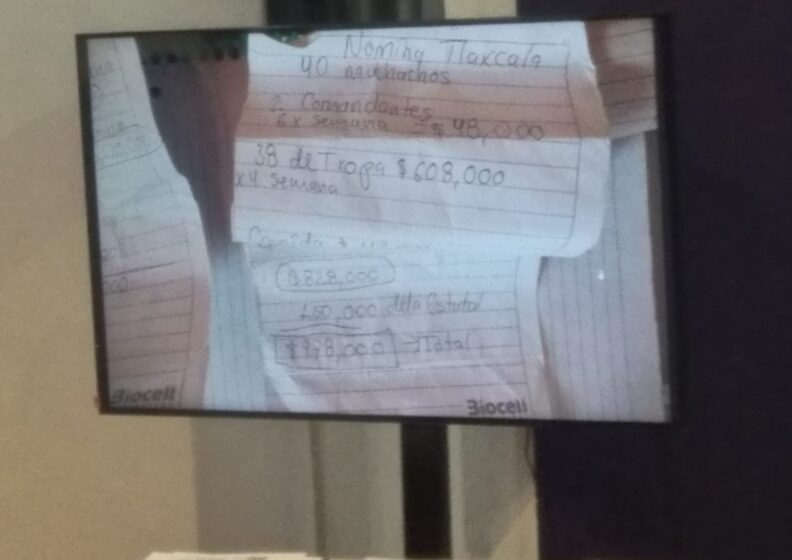 Nomina Tlaxcala
40 muchachos
2 Comandantes
6 x semana = $48,000
38 de Tropa $608,000
x4 semana
Comida
$828,000
150,000 de la Estatal
$978,000 Total
Biocell
Biocell